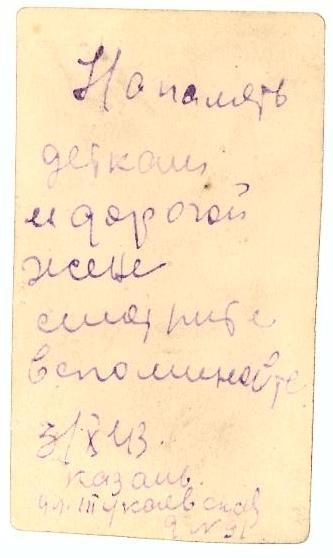 На память
деткам
и дорогой
жене
смотрите
вспоминайте
3/X 43.
Казань.
ул. Тукаевская
д N 91